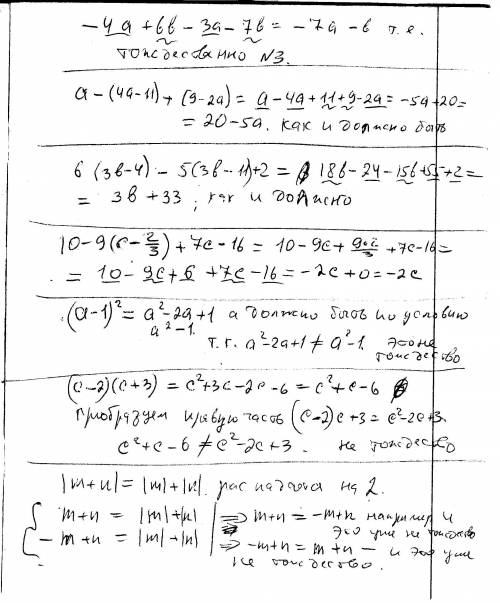 -4a + 6в - 3a - 7в = -7a - в т.е.
тождественно №3.
a - (4a-11) + (9-2a) = a - 4a + 11 + 9 - 2a = -5a + 20 =
= 20 - 5a. как и должно быть
6 (3в-4) - 5(3в-11)+2 = 18в - 24 - 15в + 55 + 2 =
= 3в + 33, как и должно
10 - 9(c - 2/3) + 7c - 16 = 10 - 9c + 9·2/3 + 7c - 16 =
= 10 - 9c + 6 + 7c - 16 = -2c + 0 = -2c
(a-1)² = a² - 2a + 1 а должно быть по условию
a² - 1.
т.к. a² - 2a + 1 ≠ a² - 1. это не
тождество
(c-2)(c+3) = c² + 3c - 2c - 6 = c² + c - 6
Приобразуем правую часть (c-2)c + 3 = c² - 2c + 3.
c² + c - 6 ≠ c² - 2c + 3. не тождество
|m+n| = |m| + |n|. распадается на 2.
m + n = |m| + |n| ⇒ m + n = -m + n например и
это уже не тождество
- m + n = |m| + |n| ⇒ -m + n = m + n - и это уже
не тождество.